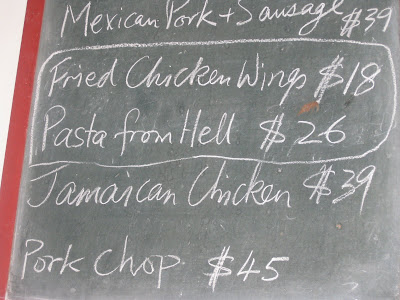 Mexican Pork + Sausage $39
Fried Chicken Wings $18
Pasta from Hell $26
Jamaican Chicken $39
Pork Chop $45